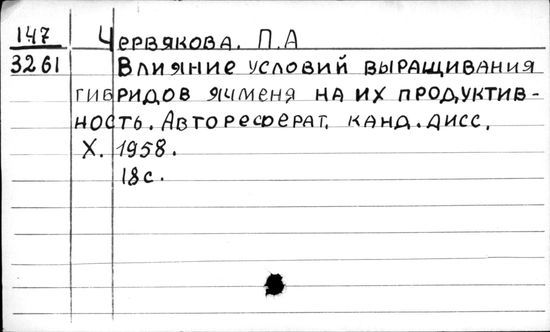 147 Червякова. П.А
3261 Влияние условий выращивания
гибридов ячменя на их продуктив-
ность. Автореферат. канд. дисс.
Х. 1958.
18с.